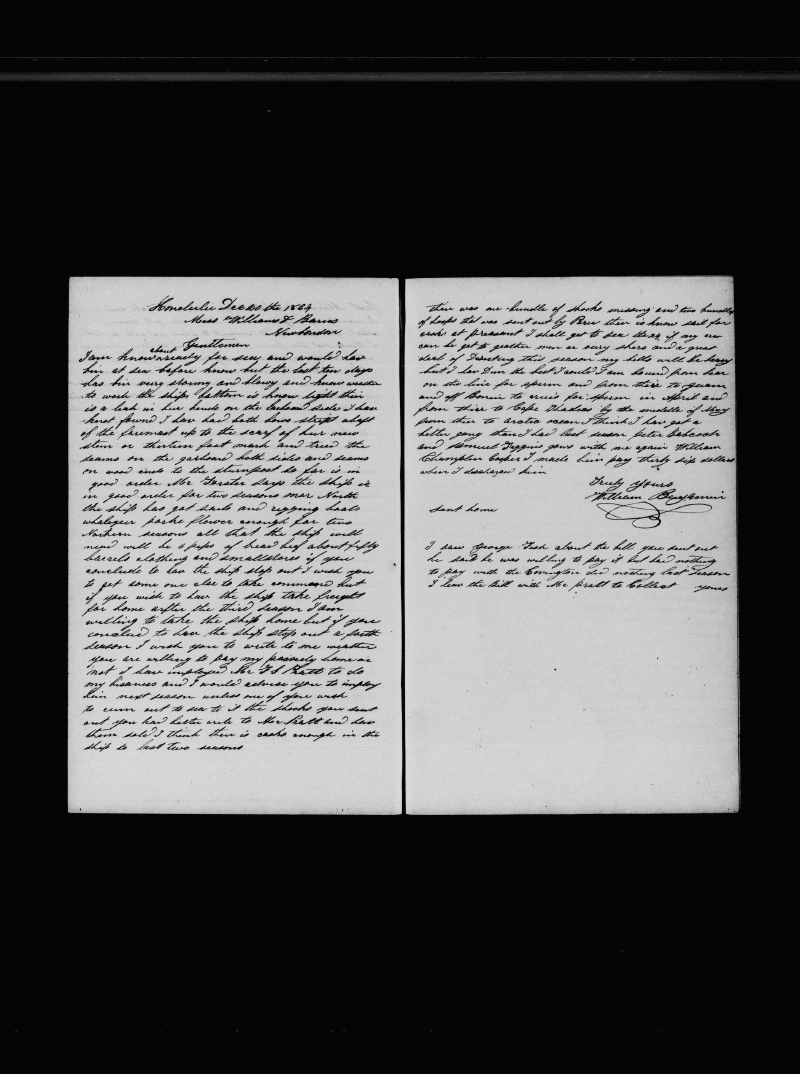 Honolulu Dec the 1864
Mess Williams & Barns
New London
Gentlemen
about
I am know ready for sea and would hav
bin at sea before know but the last ten days
has bin very stormy and blowy and know weather
to work the ships bottom is know tight thire
is a leak in hur bends on the larboard side I hav
herst fownd I hav had both bows stript abaft
of the foremast up to the scarf of hur new
stem or thirteen foot mark and tried the
seams on the garboard both sides and seams
on wood ends to the sturnpost so far is in
good order Mr Forster says the ship is
in good order for two seasons mor North
the ship has got sails and rigging boats
whalegeer porke flower enough for two
Northern seasons all that the ship will
need will be pipes of bread beef about fifty
barrels clothing and smallstores if you
conclude to hav the ship stop out I wish you
to get some one else to take command but
if you wish to have the ship take freight
for home after the third season I am
willing to take the ship home but if you
conclud to hav the ship stop out a forth
season I wish you to write to me weather
you are willing to pay my passedg home or
not I have imployed Mr F S Pratt to do
my bisaness and I would advise you to imploy
him next season unless one of you wish
to cum out to see to it the shooks you sent
out you had better write to Mr Pratt and hav
them sold I think thire is casks enough in the
ship to last two seasons
thire was one bundle of shooks missing and two bundles
of hoops that was sent out by Brew thire is know sail for
at preasant I shall get to sea the if my crew
can be get to geather men ar very skers and a great
deal of Deserting this season my bills will be heavy
but I hav Don the best I could I am bound from hear
on the line for sperm and from thire to Guam
and off Bonin to cruis for sperm in April and
from thire to Cape Thadeas by the middle of May
from thire to arctic ocean I think I hav got a
better gang than I had last season peter Babcock
and Samuel goes with me again William
Champlin Cooper I made him pay thirty six dollars
when I discharged him
Truly Yours
William Benjamin
sent home
I saw George Fish about the bill you sent out
he said he was willing to pay it but had nothing
to pay with the Covington did nothing last season
I leav the bill with Mr pratt to Collect yours